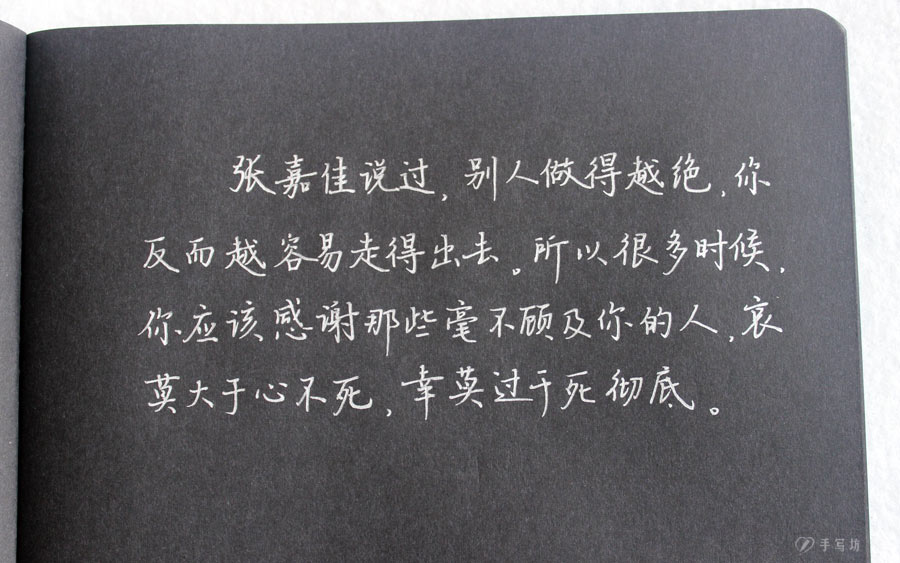 张嘉佳说过,别人做得越绝,你
反而越容易走得出去。所以很多时候,
你应该感谢那些毫不顾及你的人,哀
莫大于心不死,幸莫过于死彻底。
手写坊